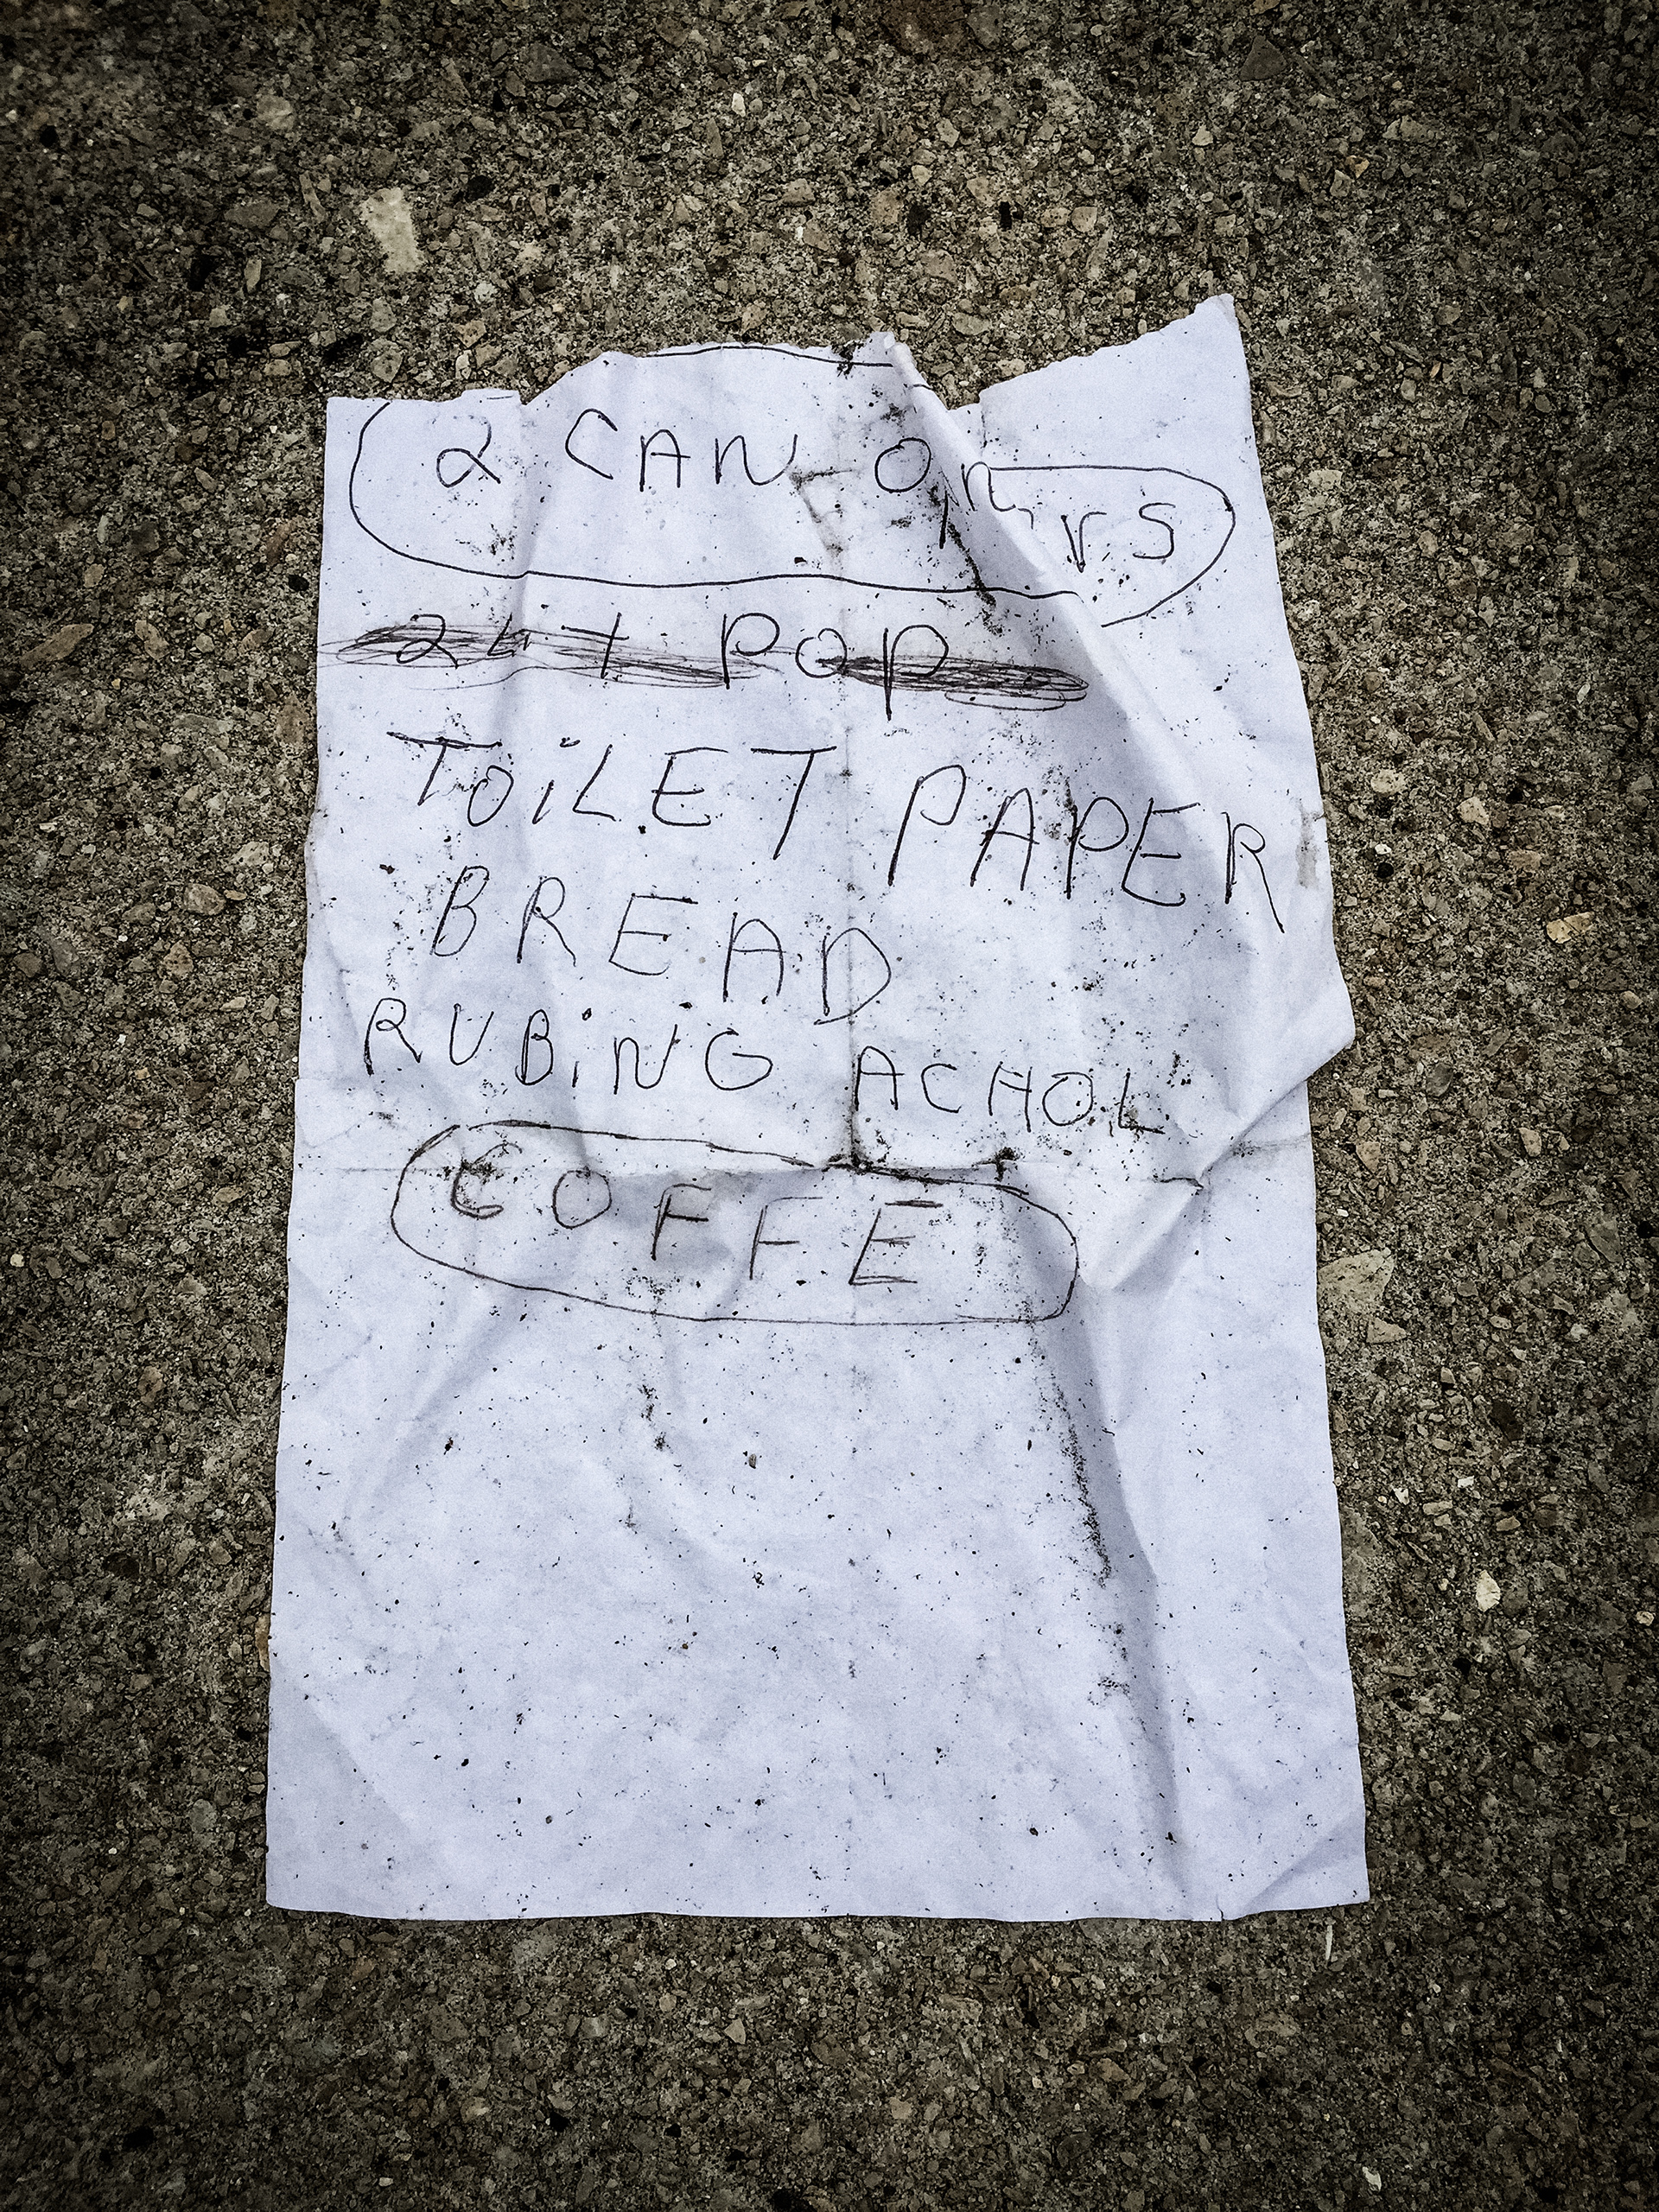 2 CAN
POP
TOiLET PAPER
BREAD
RUBiNG ACHOL
COFFE